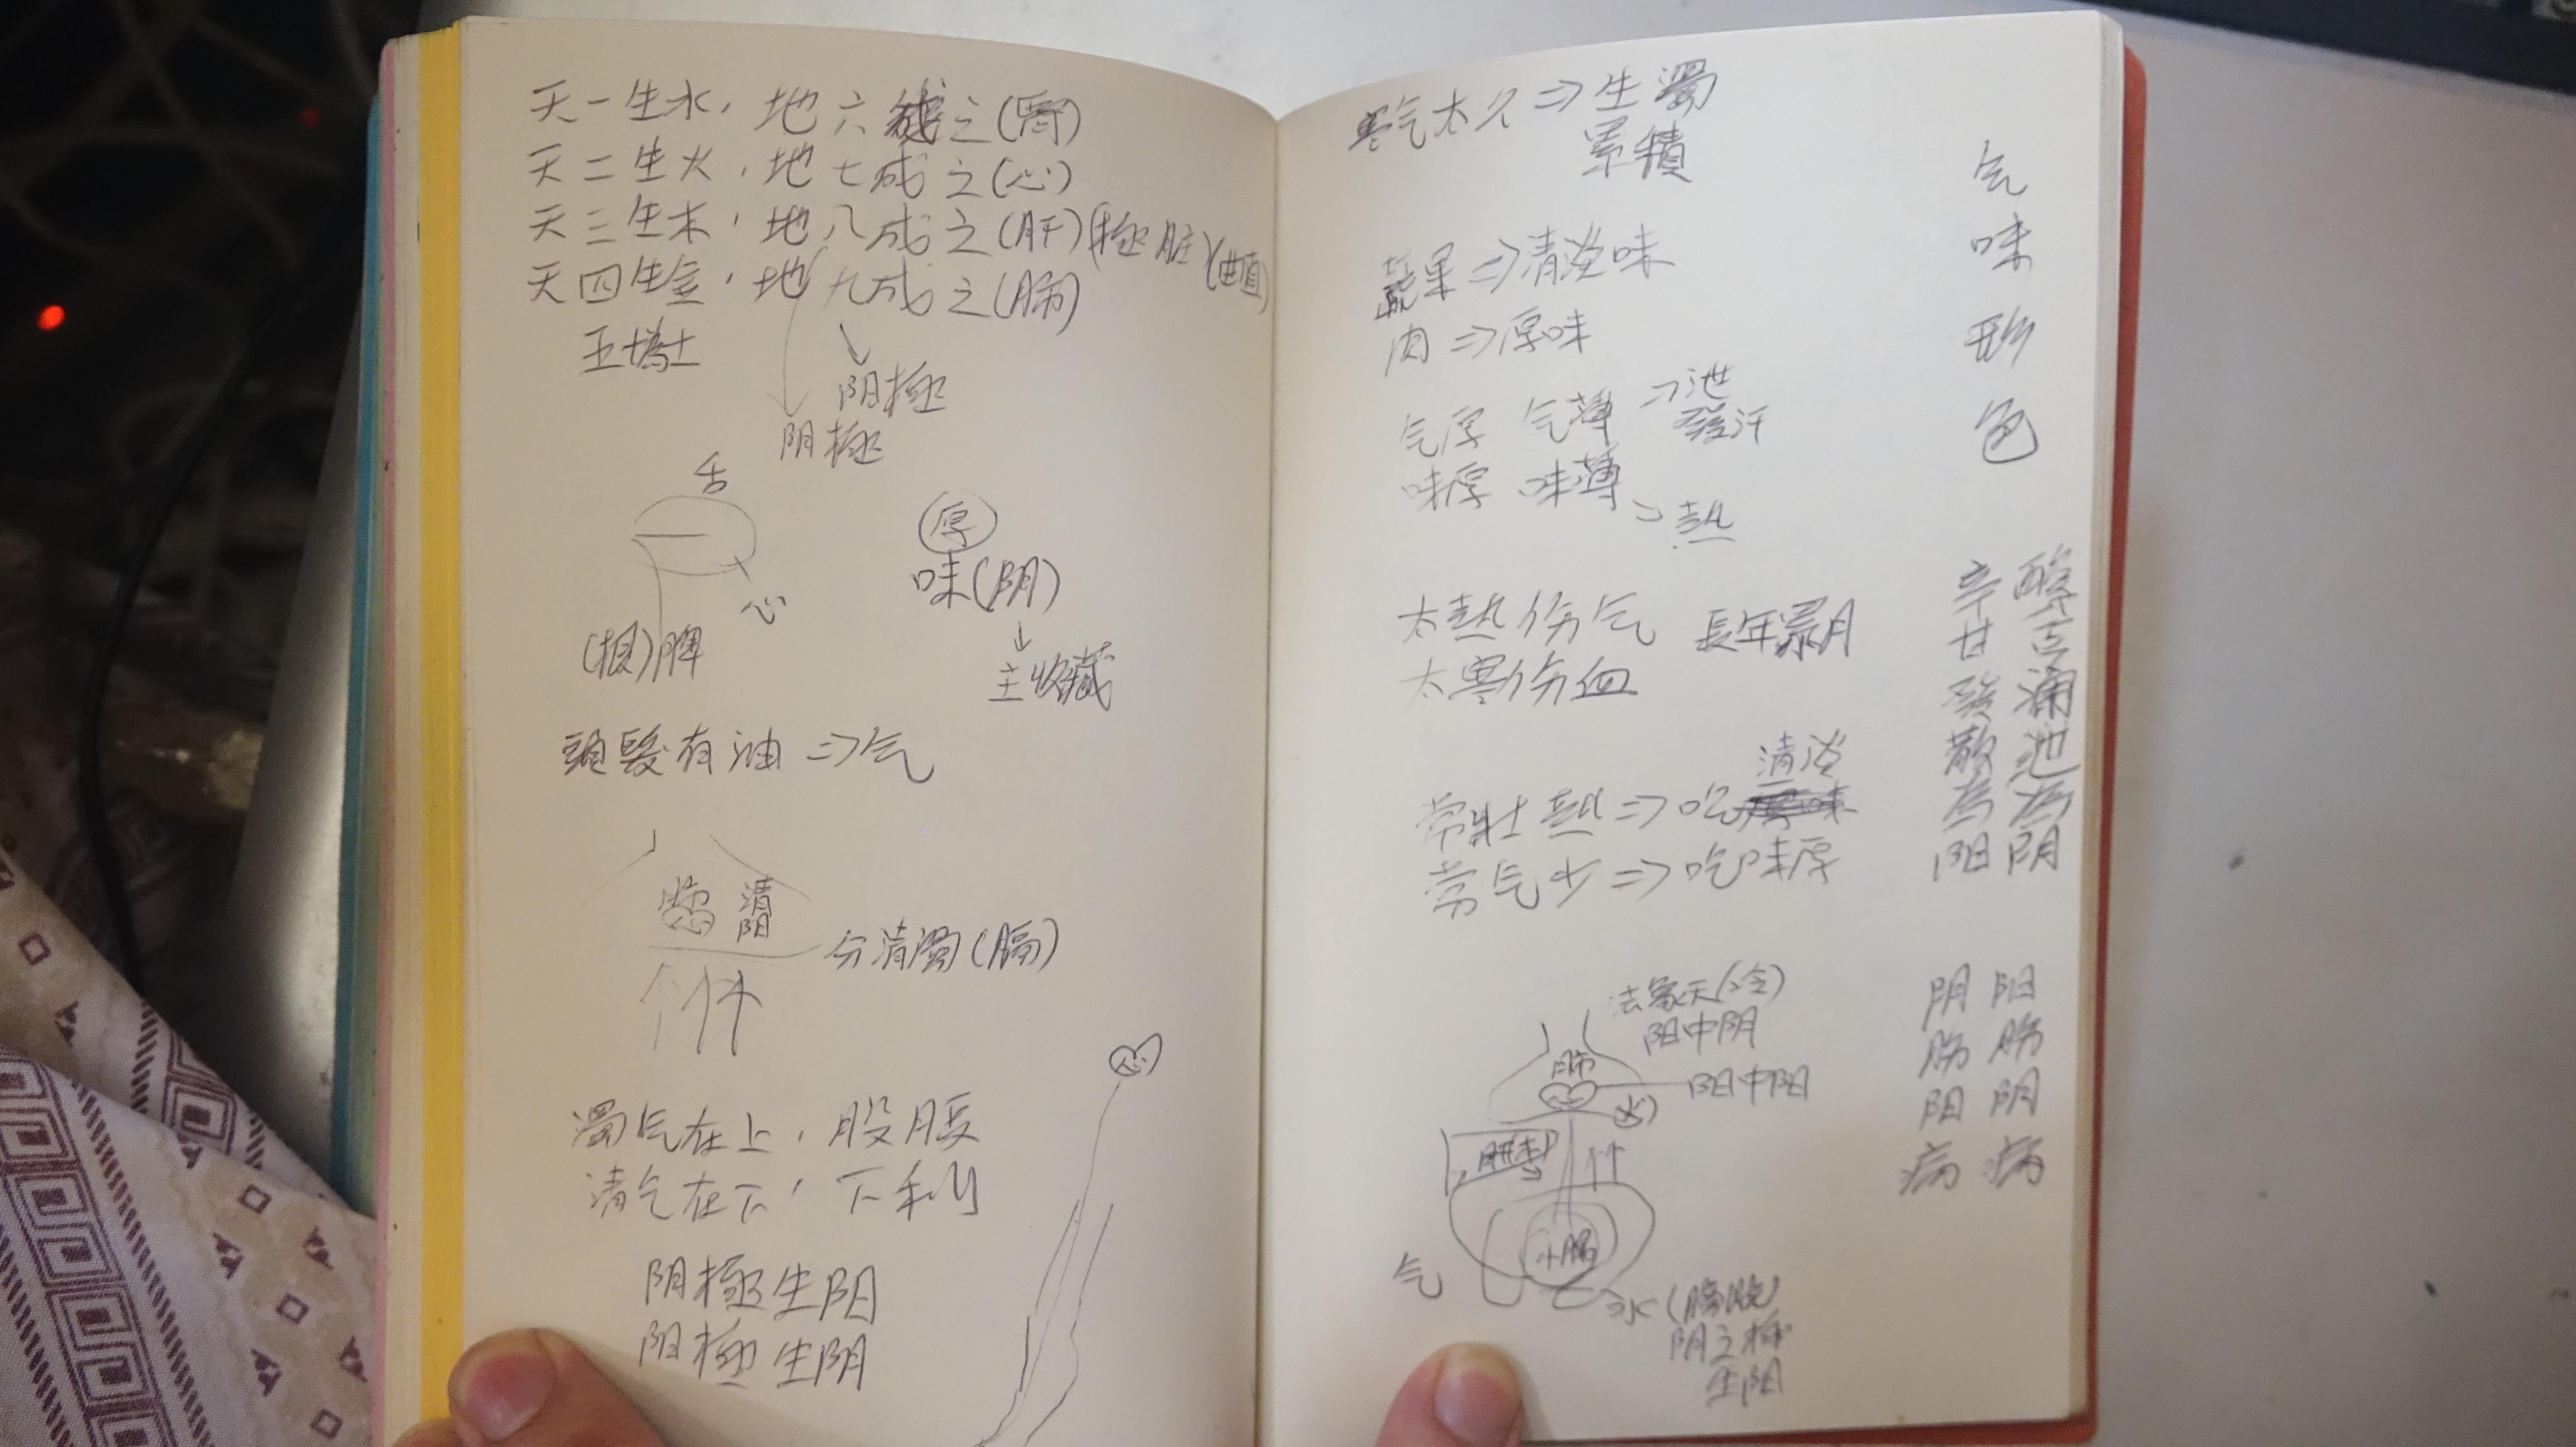 天一生水，地六成之(腎)
天二生火，地七成之(心)
天三生木，地八成之(肝)(極脏)(曲直)
天四生金，地九成之(肺)
五十為土
阴極
阴極
舌
心
(根)脾
厚
味(阴)
↓
主收藏
頭髮有油⇒气
清阳
分清濁(膈)
心
濁气在上，股胺
清气在下，下利
阴極生阳
阳極生阴
寒气太久⇒生濁
累積
蔬果⇒清淡味
肉⇒厚味
气厚 气薄→泄
發汗
味厚 味薄
→热
太热伤气 長年累月
太寒伤血
清淡
常壯热⇒吃
常气少⇒吃味厚
法象天(冷)
阳中阴
肺
阳中阳
火
小腸
气
水(膀胱)
阴之極
生阳
气
味
形
色
辛甘發散為阳
酸苦涌泄為阴
阴伤阳病
阳伤阴病